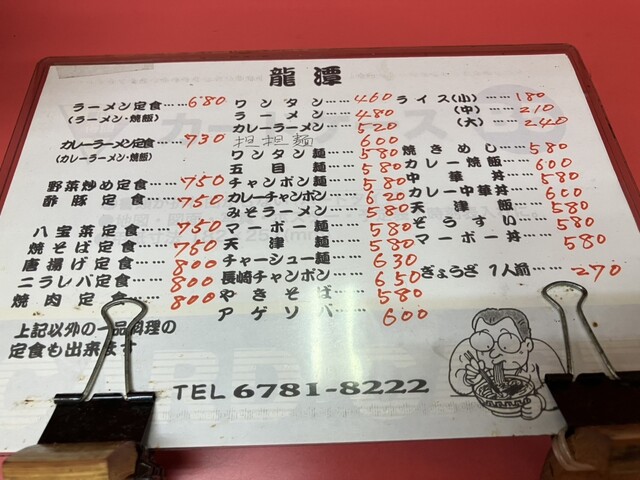 龍潭
ラーメン定食……680
(ラーメン・焼飯)
カレーラーメン定食……730
(カレーラーメン・焼飯)
野菜炒め定食……750
酢豚定食……750
八宝菜定食……750
焼そば定食……750
唐揚げ定食……800
ニラレバ定食……800
焼肉定食……800
上記以外の一品料理の
定食も出来ます
ワンタン……460
ラーメン……480
カレーラーメン……520
担担麺 600
ワンタン麺……580
五目麺……580
チャンポン麺……580
カレーチャンポン……620
みそラーメン……580
マーボー麺……580
天津麺……580
チャーシュー麺……630
長崎チャンポン……650
やきそば……580
アゲソバ……600
ライス(小)……180
(中)……210
(大)……240
焼きめし……580
カレー焼飯……600
中華丼……580
カレー中華丼……600
天津飯……580
ぞうすい……580
マーボー丼……580
ぎょうざ 1人前……270
TEL 6781-8222